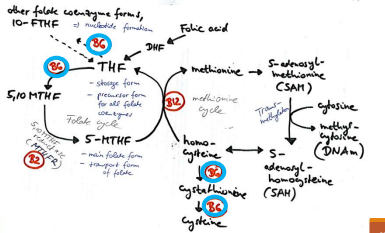 other folate coenzyme forms,
10-FTHF
=> nucleotide formation
Folic acid
B6
DHF
B6
THF
- storage form
- precursor form
for all folate
coenzymes
methionine
S-adenosyl-
methionine
(SAM)
5,10 MTHF
Folate cycle
B12
methionine
cycle
Trans-
methylation
cytosine
methyl-
cytosine
(DNAm)
5,10 MTHF
(MTHFR)
B2
5-MTHF
- main folate form
- transport form
of folate
homo-
cysteine
S-
adenosyl-
homocysteine
(SAH)
B6
cystathionine
B6
cysteine